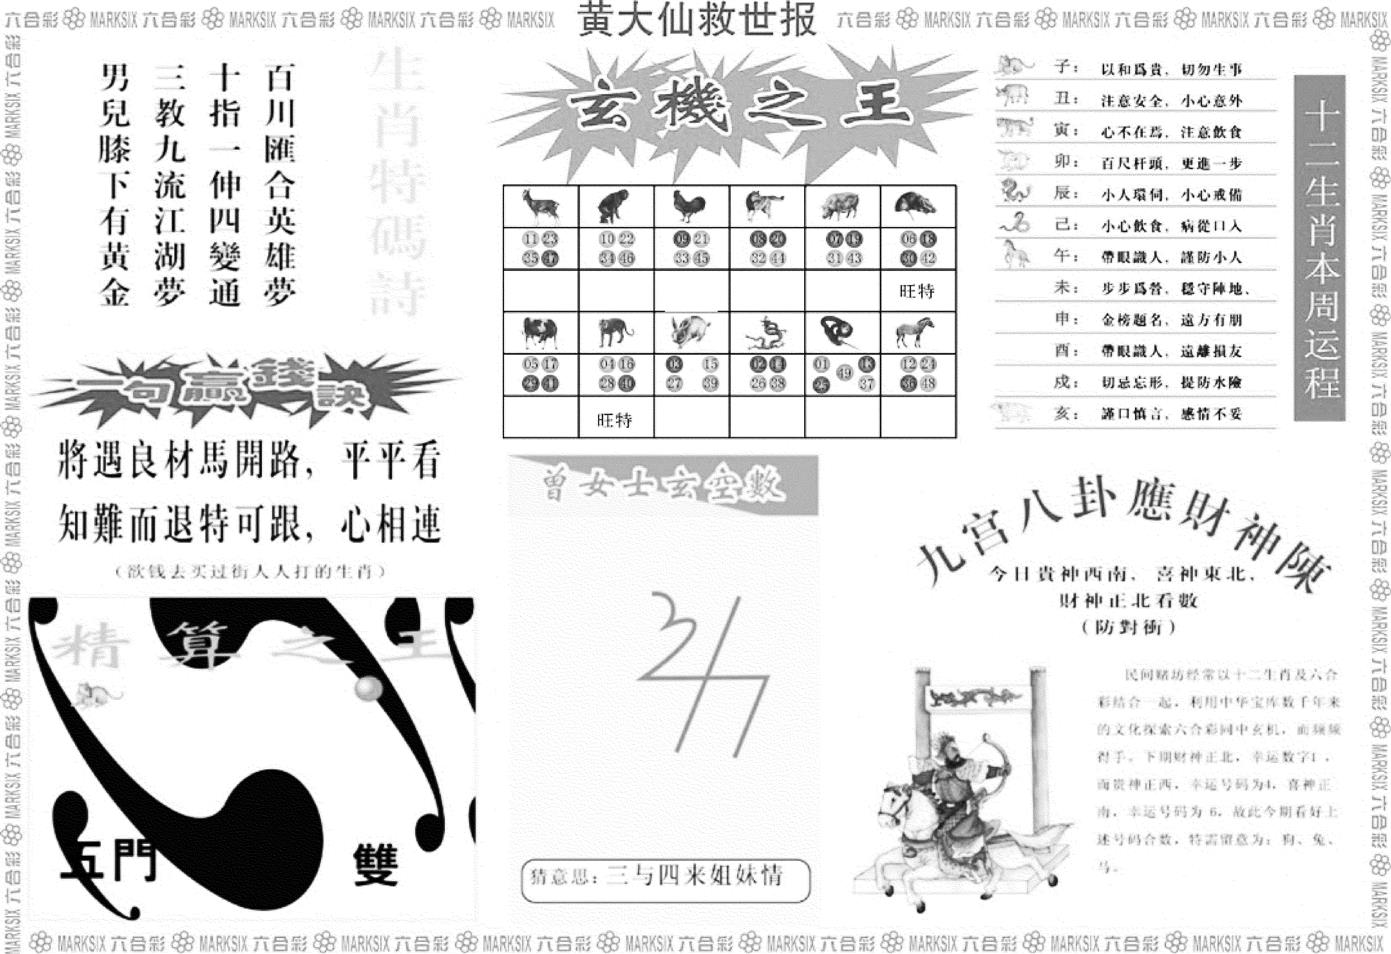 黄大仙救世报
生肖特碼詩
百川匯合英雄夢
十指一伸四變通
三教九流江湖夢
男兒膝下有黃金
玄機之王
11 23 10 22 09 21 08 20 07 19 06 18
35 47 34 46 33 45 32 44 31 43 30 42
旺特
05 17 04 16 03 15 02 14 01 13 12 24
29 41 28 40 27 39 26 38 25 49 37 36 48
旺特
十二生肖本周运程
子：以和爲貴，切勿生事
丑：注意安全，小心意外
寅：心不在焉，注意飲食
卯：百尺杆頭，更進一步
辰：小人環伺，小心戒備
己：小心飲食，病從口入
午：帶眼識人，謹防小人
未：步步爲營，穩守陣地、
申：金榜題名，遠方有朋
酉：帶眼識人，遠離損友
戍：切忌忘形，提防水險
亥：謹口慎言，感情不妥
一句贏錢訣
將遇良材馬開路，平平看
知難而退特可跟，心相連
（欲钱去买过街人人打的生肖）
精算之王
五門
雙
曾女士玄空數
猜意思：三与四来姐妹情
九宮八卦應財神陳
今日貴神西南，喜神東北，
財神正北看數
（防對衝）
民间赌坊经常以十二生肖及六合
彩结合一起，利用中华宝库数千年来
的文化探索六合彩同中玄机，而频频
得手。下期财神正北，幸运数字1，
而贵神正西，幸运号码为4，喜神正
南，幸运号码为 6，故此今期看好上
述号码合数，特需留意为：狗、兔、
马。
MARKSIX 六合彩